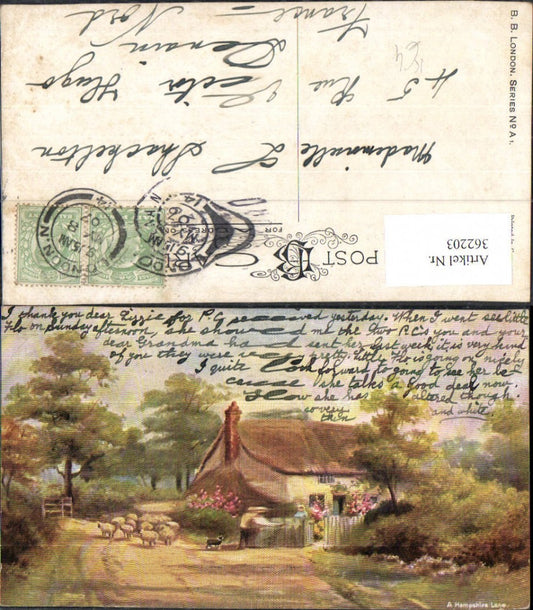 B. B. LONDON. SERIES Nº A1.
POST
CARD
FOR
Mademoiselle L. Shackelton
45 Rue Victor Hugo
Denain
Nord
France
LONDON. N
9.15 AM
07
14
Artikel Nr.
362203
I thank you dear Lizzie for P.C received yesterday. When I went see little
Flo on Sunday afternoon, she showed me the two P.C's you and your
dear Grandma had sent her last week, it is very kind
of you they were very pretty. little Flo is going on nicely
I quite look forward to going to see her be
cause she talks a good deal now.
How she has altered though.
so very thin
and white
A Hampshire Lane.